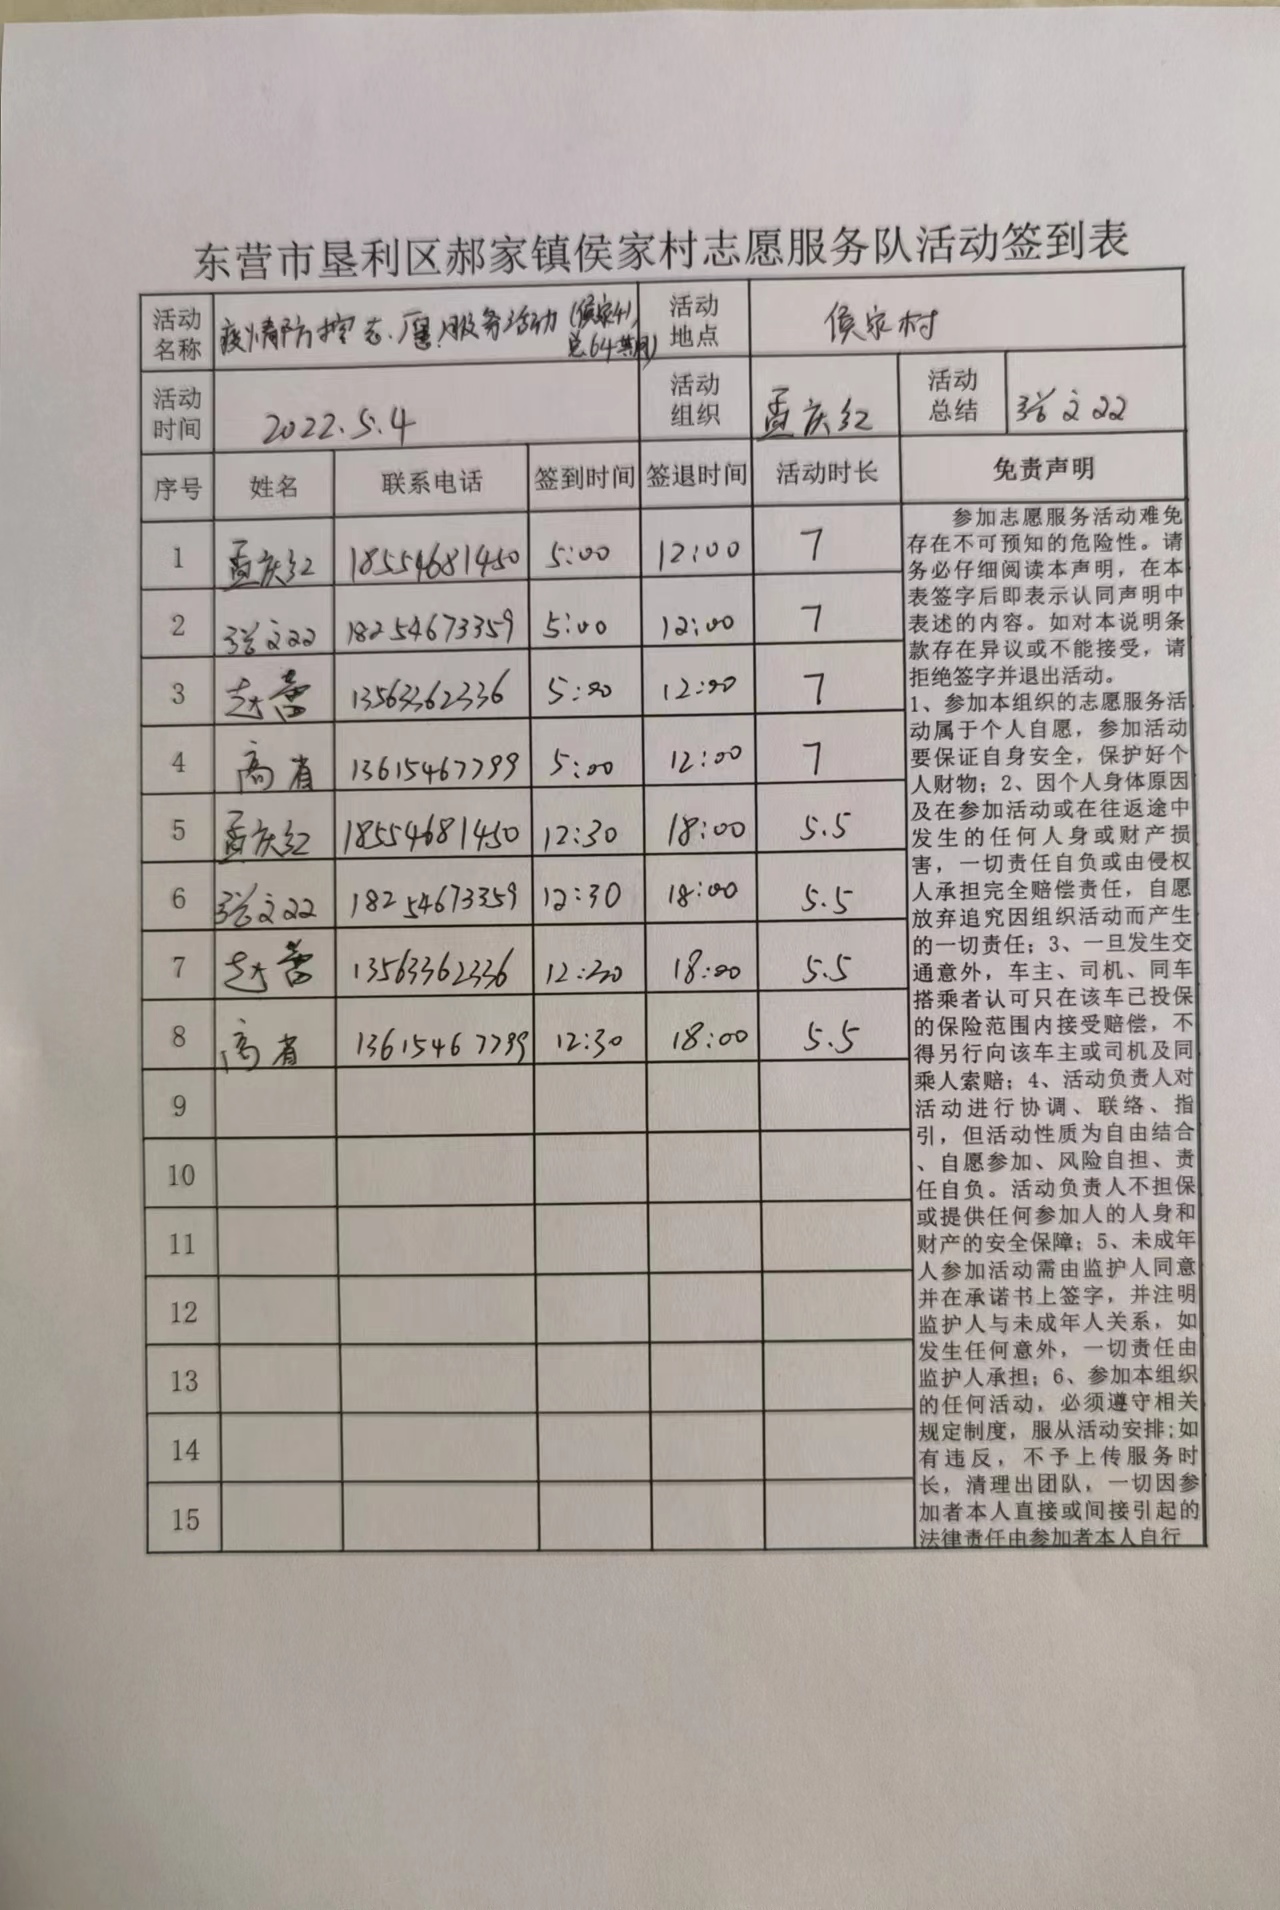 东营市垦利区郝家镇侯家村志愿服务队活动签到表
活动名称 疫情防控志愿服务活动(侯家村,总64 活动地点 侯家村
活动时间 2022.5.4 活动组织 孟庆红 活动总结 张文双
序号 姓名 联系电话 签到时间 签退时间 活动时长 免责声明
1 孟庆红 18554681450 5:00 12:00 7
2 张文双 18254673359 5:00 12:00 7
3 赵蕾 13563362336 5:00 12:00 7
4 高省 13615467799 5:00 12:00 7
5 孟庆红 18554681450 12:30 18:00 5.5
6 张文双 18254673359 12:30 18:00 5.5
7 赵蕾 13563362336 12:30 18:00 5.5
8 高省 13615467799 12:30 18:00 5.5
9
10
11
12
13
14
15
参加志愿服务活动难免
存在不可预知的危险性。请
务必仔细阅读本声明，在本
表签字后即表示认同声明中
表述的内容。如对本说明条
款存在异议或不能接受，请
拒绝签字并退出活动。
1、参加本组织的志愿服务活
动属于个人自愿，参加活动
要保证自身安全，保护好个
人财物；2、因个人身体原因
及在参加活动或在往返途中
发生的任何人身或财产损
害，一切责任自负或由侵权
人承担完全赔偿责任，自愿
放弃追究因组织活动而产生
的一切责任；3、一旦发生交
通意外，车主、司机、同车
搭乘者认可只在该车已投保
的保险范围内接受赔偿，不
得另行向该车主或司机及同
乘人索赔；4、活动负责人对
活动进行协调、联络、指
引，但活动性质为自由结合
、自愿参加、风险自担、责
任自负。活动负责人不担保
或提供任何参加人的人身和
财产的安全保障；5、未成年
人参加活动需由监护人同意
并在承诺书上签字，并注明
监护人与未成年人关系，如
发生任何意外，一切责任由
监护人承担；6、参加本组织
的任何活动，必须遵守相关
规定制度，服从活动安排;如
有违反，不予上传服务时
长，清理出团队，一切因参
加者本人直接或间接引起的
法律责任由参加者本人自行